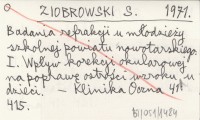 ZIOBROWSKI S. 1971.
Badania refrakcji u młodzieży
szkolnej powiatu nowotarskiego
I. Wpływ korekcji okularowej
na poprawę ostrości wzroku u
dzieci. – Klinika Oczna 41:
415.